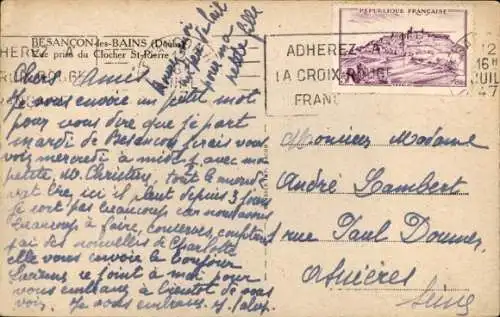 BESANÇON-les-BAINS (Doubs)
Vue prise du Clocher St-Pierre
Chers Amis
Je vous envoie un petit mot
pour vous dire que je part
mardi de Besançon, irais vous
voir mercredi à midi, avec ma
petite, M. Christian, tout le monde
va être ici il pleut depuis 3 jours
Je sort pas beaucoup car nous avons
beaucoup à faire, conserves, confitures
j'ai des nouvelles de Charlotte
elle vous envoie le bonjour
Suzanne se joint à moi pour
vous embrasse à bientôt de vous
voir. Je vous embrasse
pour ma
petite fille
RÉPUBLIQUE FRANÇAISE
ADHEREZ A
LA CROIX ROUGE
FRANÇ
12
16H
JUIL
47
Monsieur Madame
André Lambert
rue Paul Doumer
Asnières
Seine